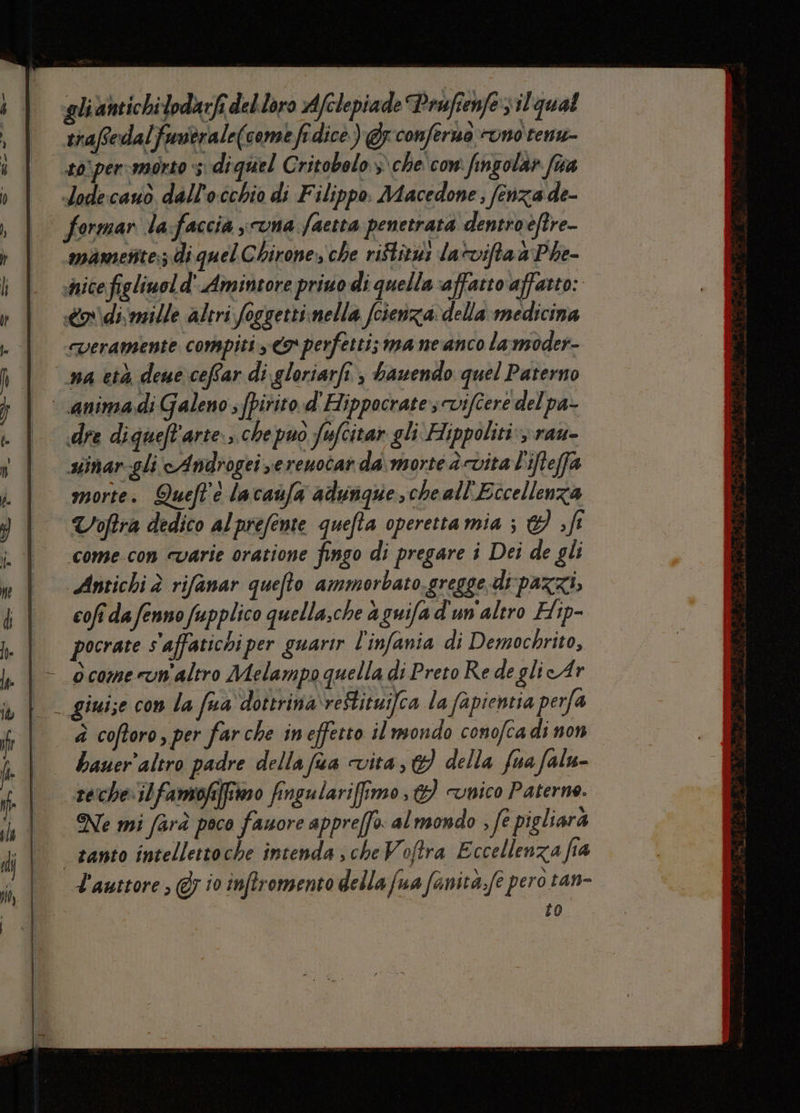 gli antichi lodarsi del loro Asclepiade Prusiense; il qual
trasse dal funerale (come si dice) & conseruò vno tenu-
to per morto; di quel Critobolo, che con singolar sua
lode cauò dall'occhio di Filippo Macedone, senza de-
formar la faccia, vna saetta penetrata dentro estre-
mamente; di quel Chirone, che ristituì la vista à Phe-
nice figliuol d'Amintore priuo di quella affatto affatto:
& di mille altri soggetti nella scienza della medicina
veramente compiti, & perfetti; ma ne anco la moder-
na età deue cessar di gloriarsi, hauendo quel Paterno
anima di Galeno, spirito d'Hippocrate, viscere del pa-
dre di quest'arte, che può suscitar gli Hippoliti, rau-
uiuar gli Androgei, e reuocar da morte à vita l'istessa
morte. Quest'è la causa adunque, che all'Eccellenza
Vostra dedico al presente questa operetta mia; & si
come con varie oratione fingo di pregare i Dei de gli
Antichi à risanar questo ammorbato gregge di pazzi,
cosi da senno supplico quella, che à guisa d'un'altro Hip-
pocrate s'affatichi per guarir l'insania di Demochrito,
ò come vn'altro Melampo quella di Preto Re de gli Ar
giui; e con la sua dottrina restituisca la sapientia persa
à costoro, per far che in effetto il mondo conosca di non
hauer'altro padre della sua vita, & della sua salu-
te che il famosissimo singularissimo, & vnico Paterno.
Ne mi sarà poco fauore appresso al mondo, se pigliarà
tanto intelletto che intenda, che Vostra Eccellenza sia
l'auttore, & io instromento della sua sanità, se però tan-
to